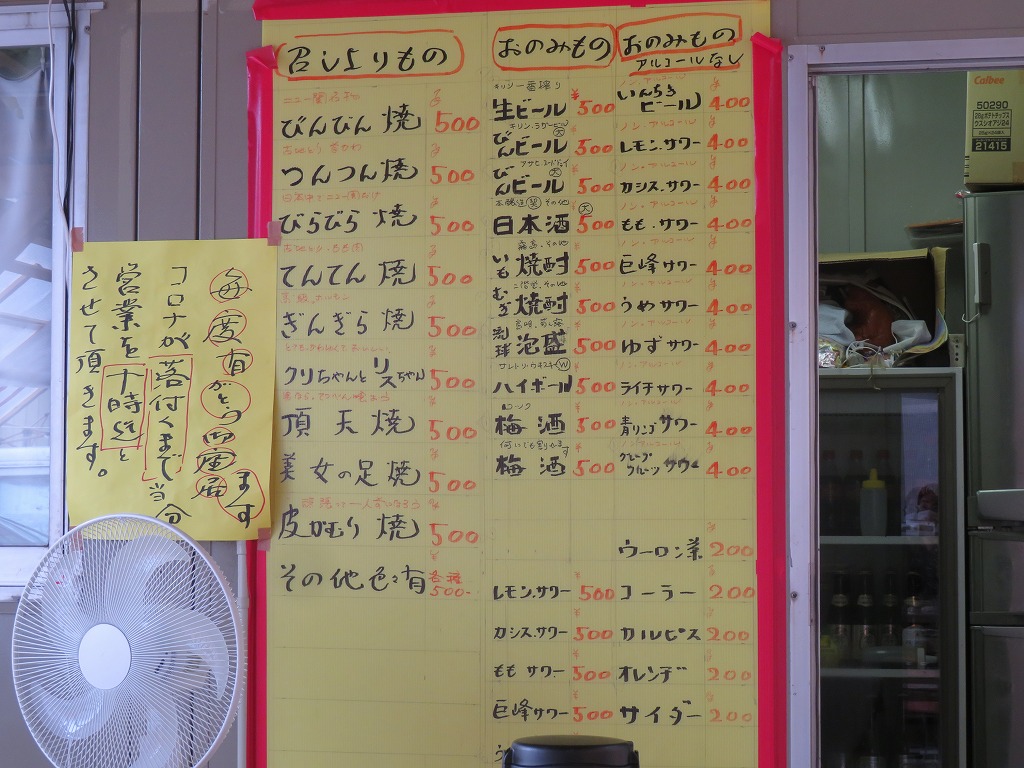 召し上りもの
びんびん焼 500
つんつん焼 500
びらびら焼 500
てんてん焼 500
ぎんぎら焼 500
クリちゃんとリスちゃん 500
頂天焼 500
美女の足焼 500
皮かむり焼 500
その他色々有 各種500-
おのみもの
キリン一番搾り
生ビール ¥500
びんビール 大 500
びんビール 大 500
日本酒 大 500
霧島、その他
いも焼酎 500
むぎ焼酎 500
琉球泡盛 500
ハイボール 500
ロック
梅酒 500
梅酒 500
レモン.サワー 500
カシス.サワー 500
もも サワー 500
巨峰サワー 500
おのみもの
アルコールなし
ノン・アルコール
いんちきビール 400
ノン・アルコール
レモン.サワー 400
ノン・アルコール
カシス.サワー 400
ノン・アルコール
もも.サワー 400
ノン・アルコール
巨峰サワー 400
ノン・アルコール
うめサワー 400
ノン・アルコール
ゆずサワー 400
ノン・アルコール
ライチサワー 400
ノン・アルコール
青リンゴサワー 400
ノン・アルコール
グレープフルーツサワー 400
ウーロン茶 200
コーラー 200
カルピス 200
オレンヂ 200
サイダー 200
毎度有がとう御座居ます
コロナが落付くまで当分
営業を十時迄と
させて頂きます。
Calbee
50290
21415